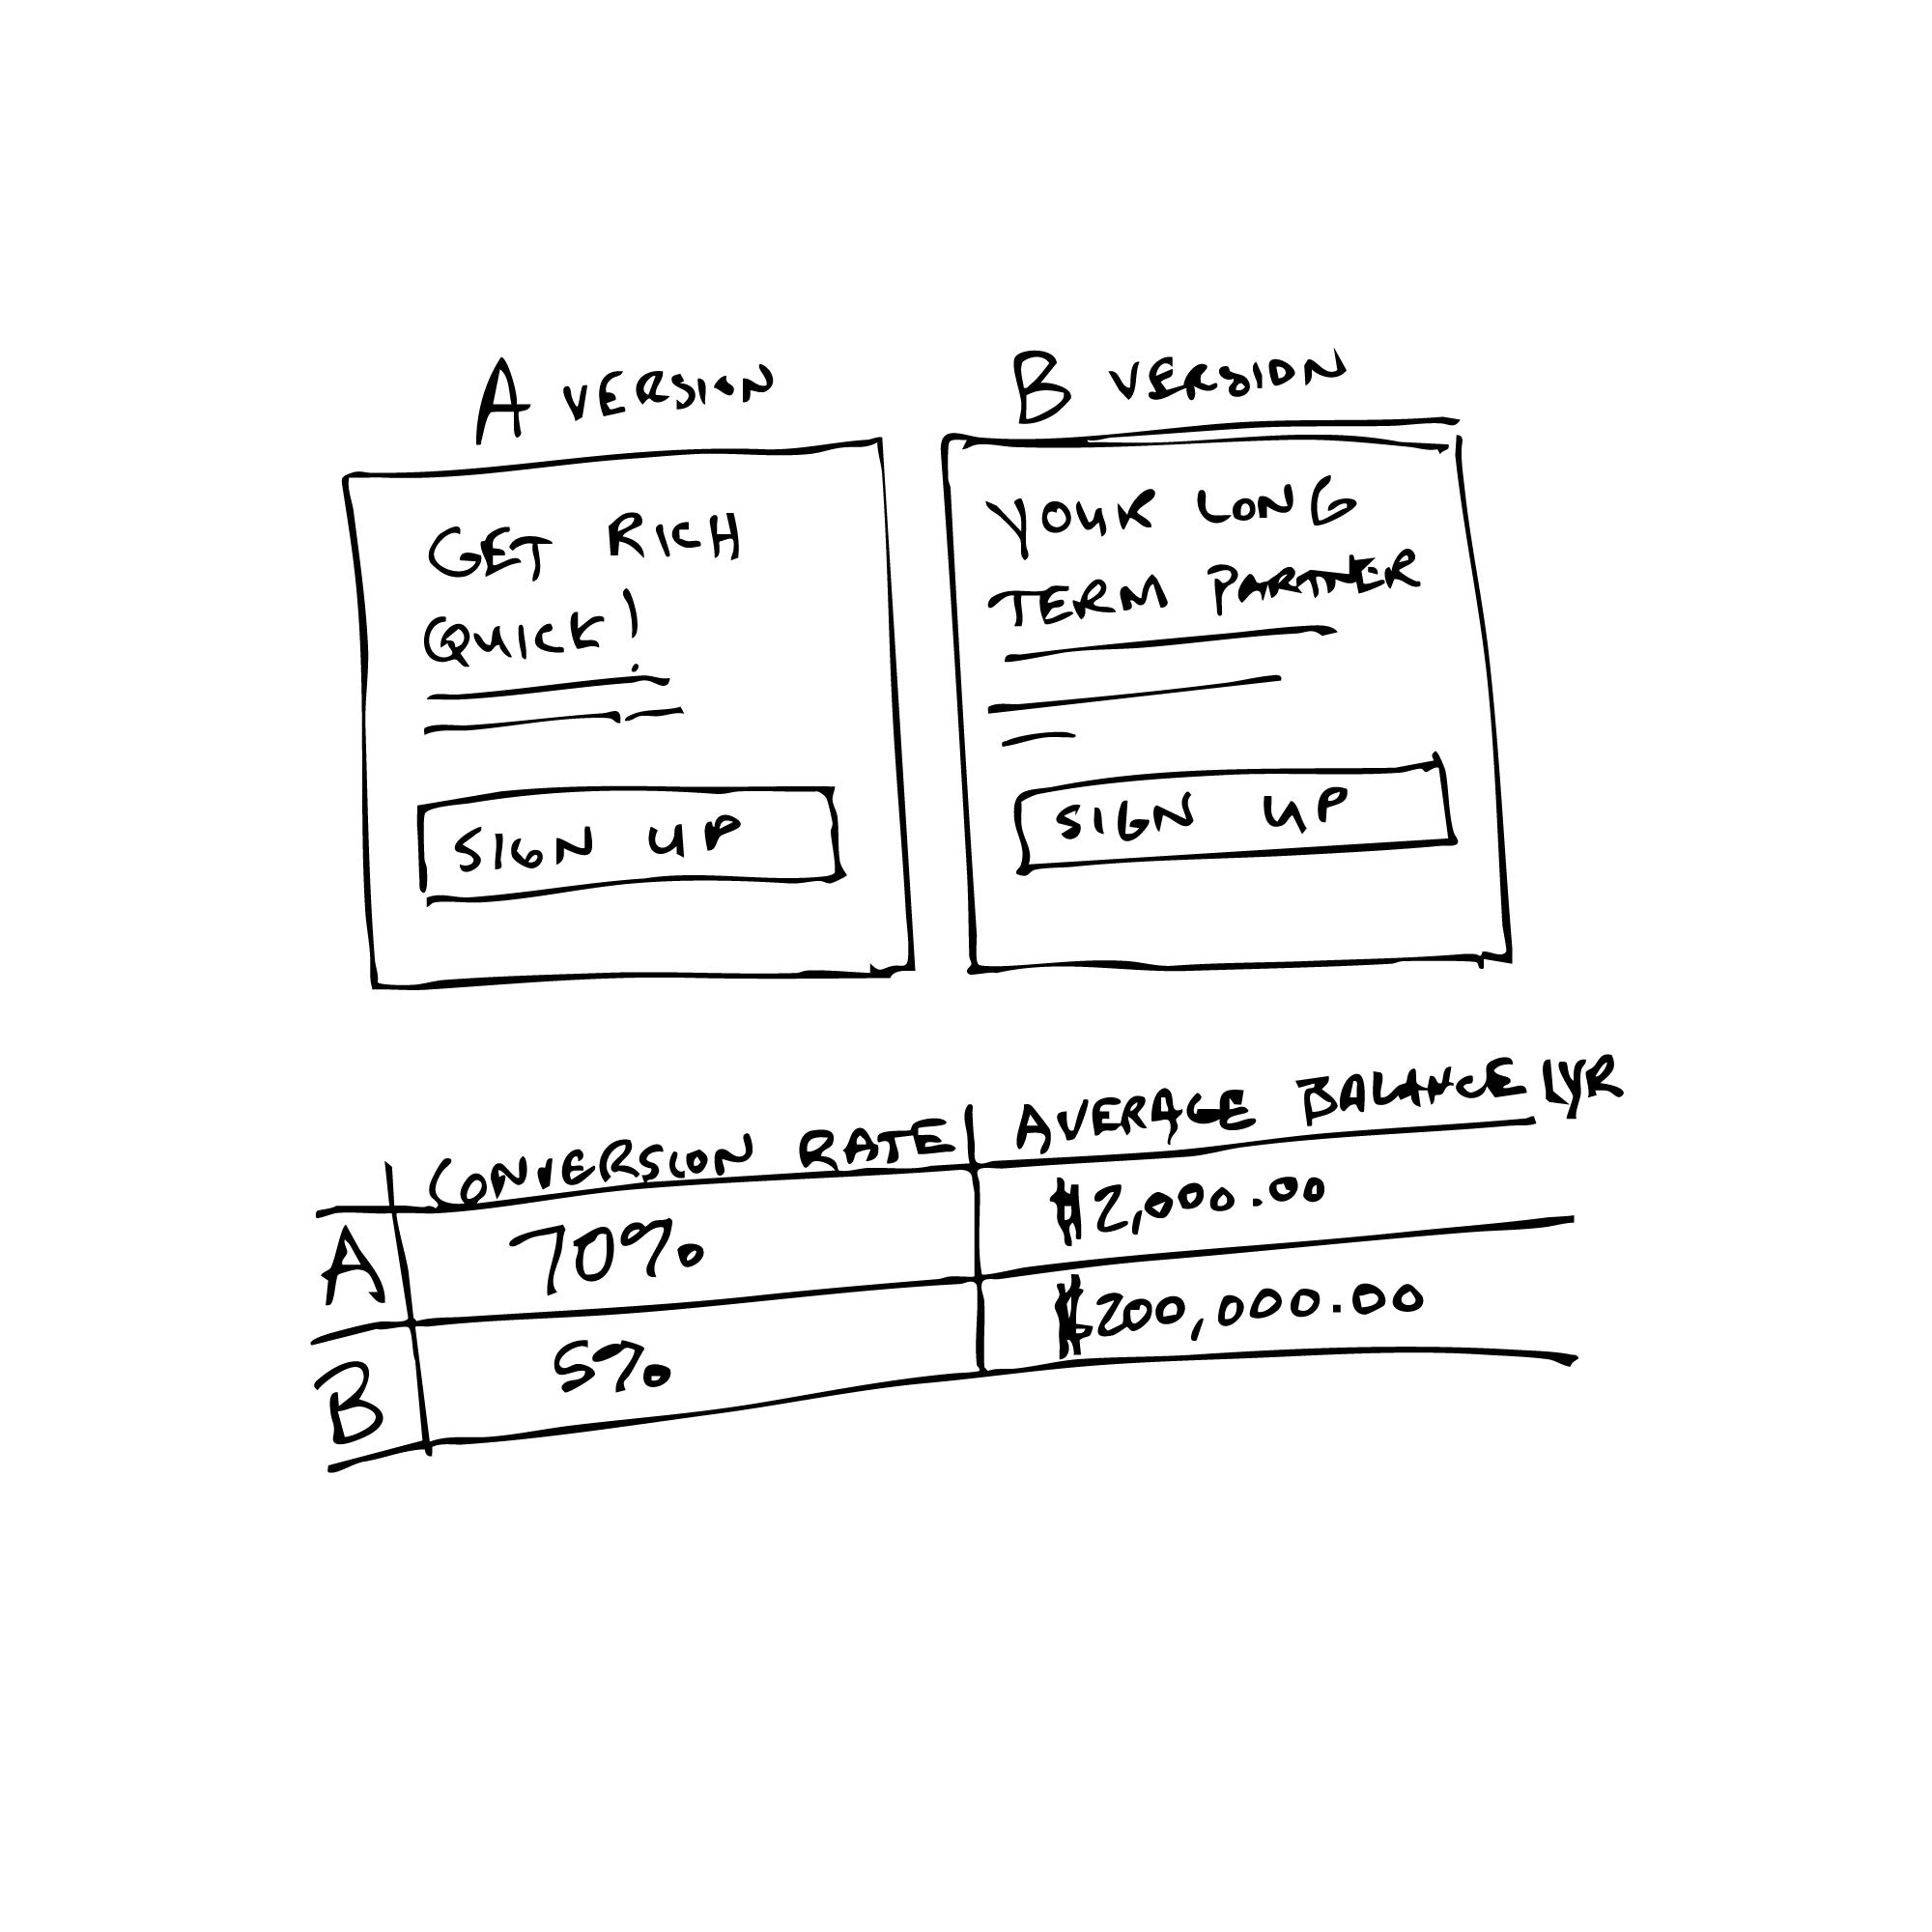 A VERSION
B VERSION
GET RICH
QUICK!
SIGN UP
YOUR LONG
TERM PARTNER
SIGN UP
CONVERSION RATE AVERAGE BALANCE 1YR
A 70% $2,000.00
B 5% $200,000.00